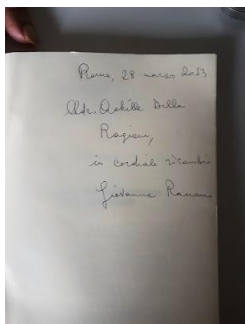 Roma, 28 marzo 2013
Achille Della
Ragione,
in cordiale ricambio
Giovanna